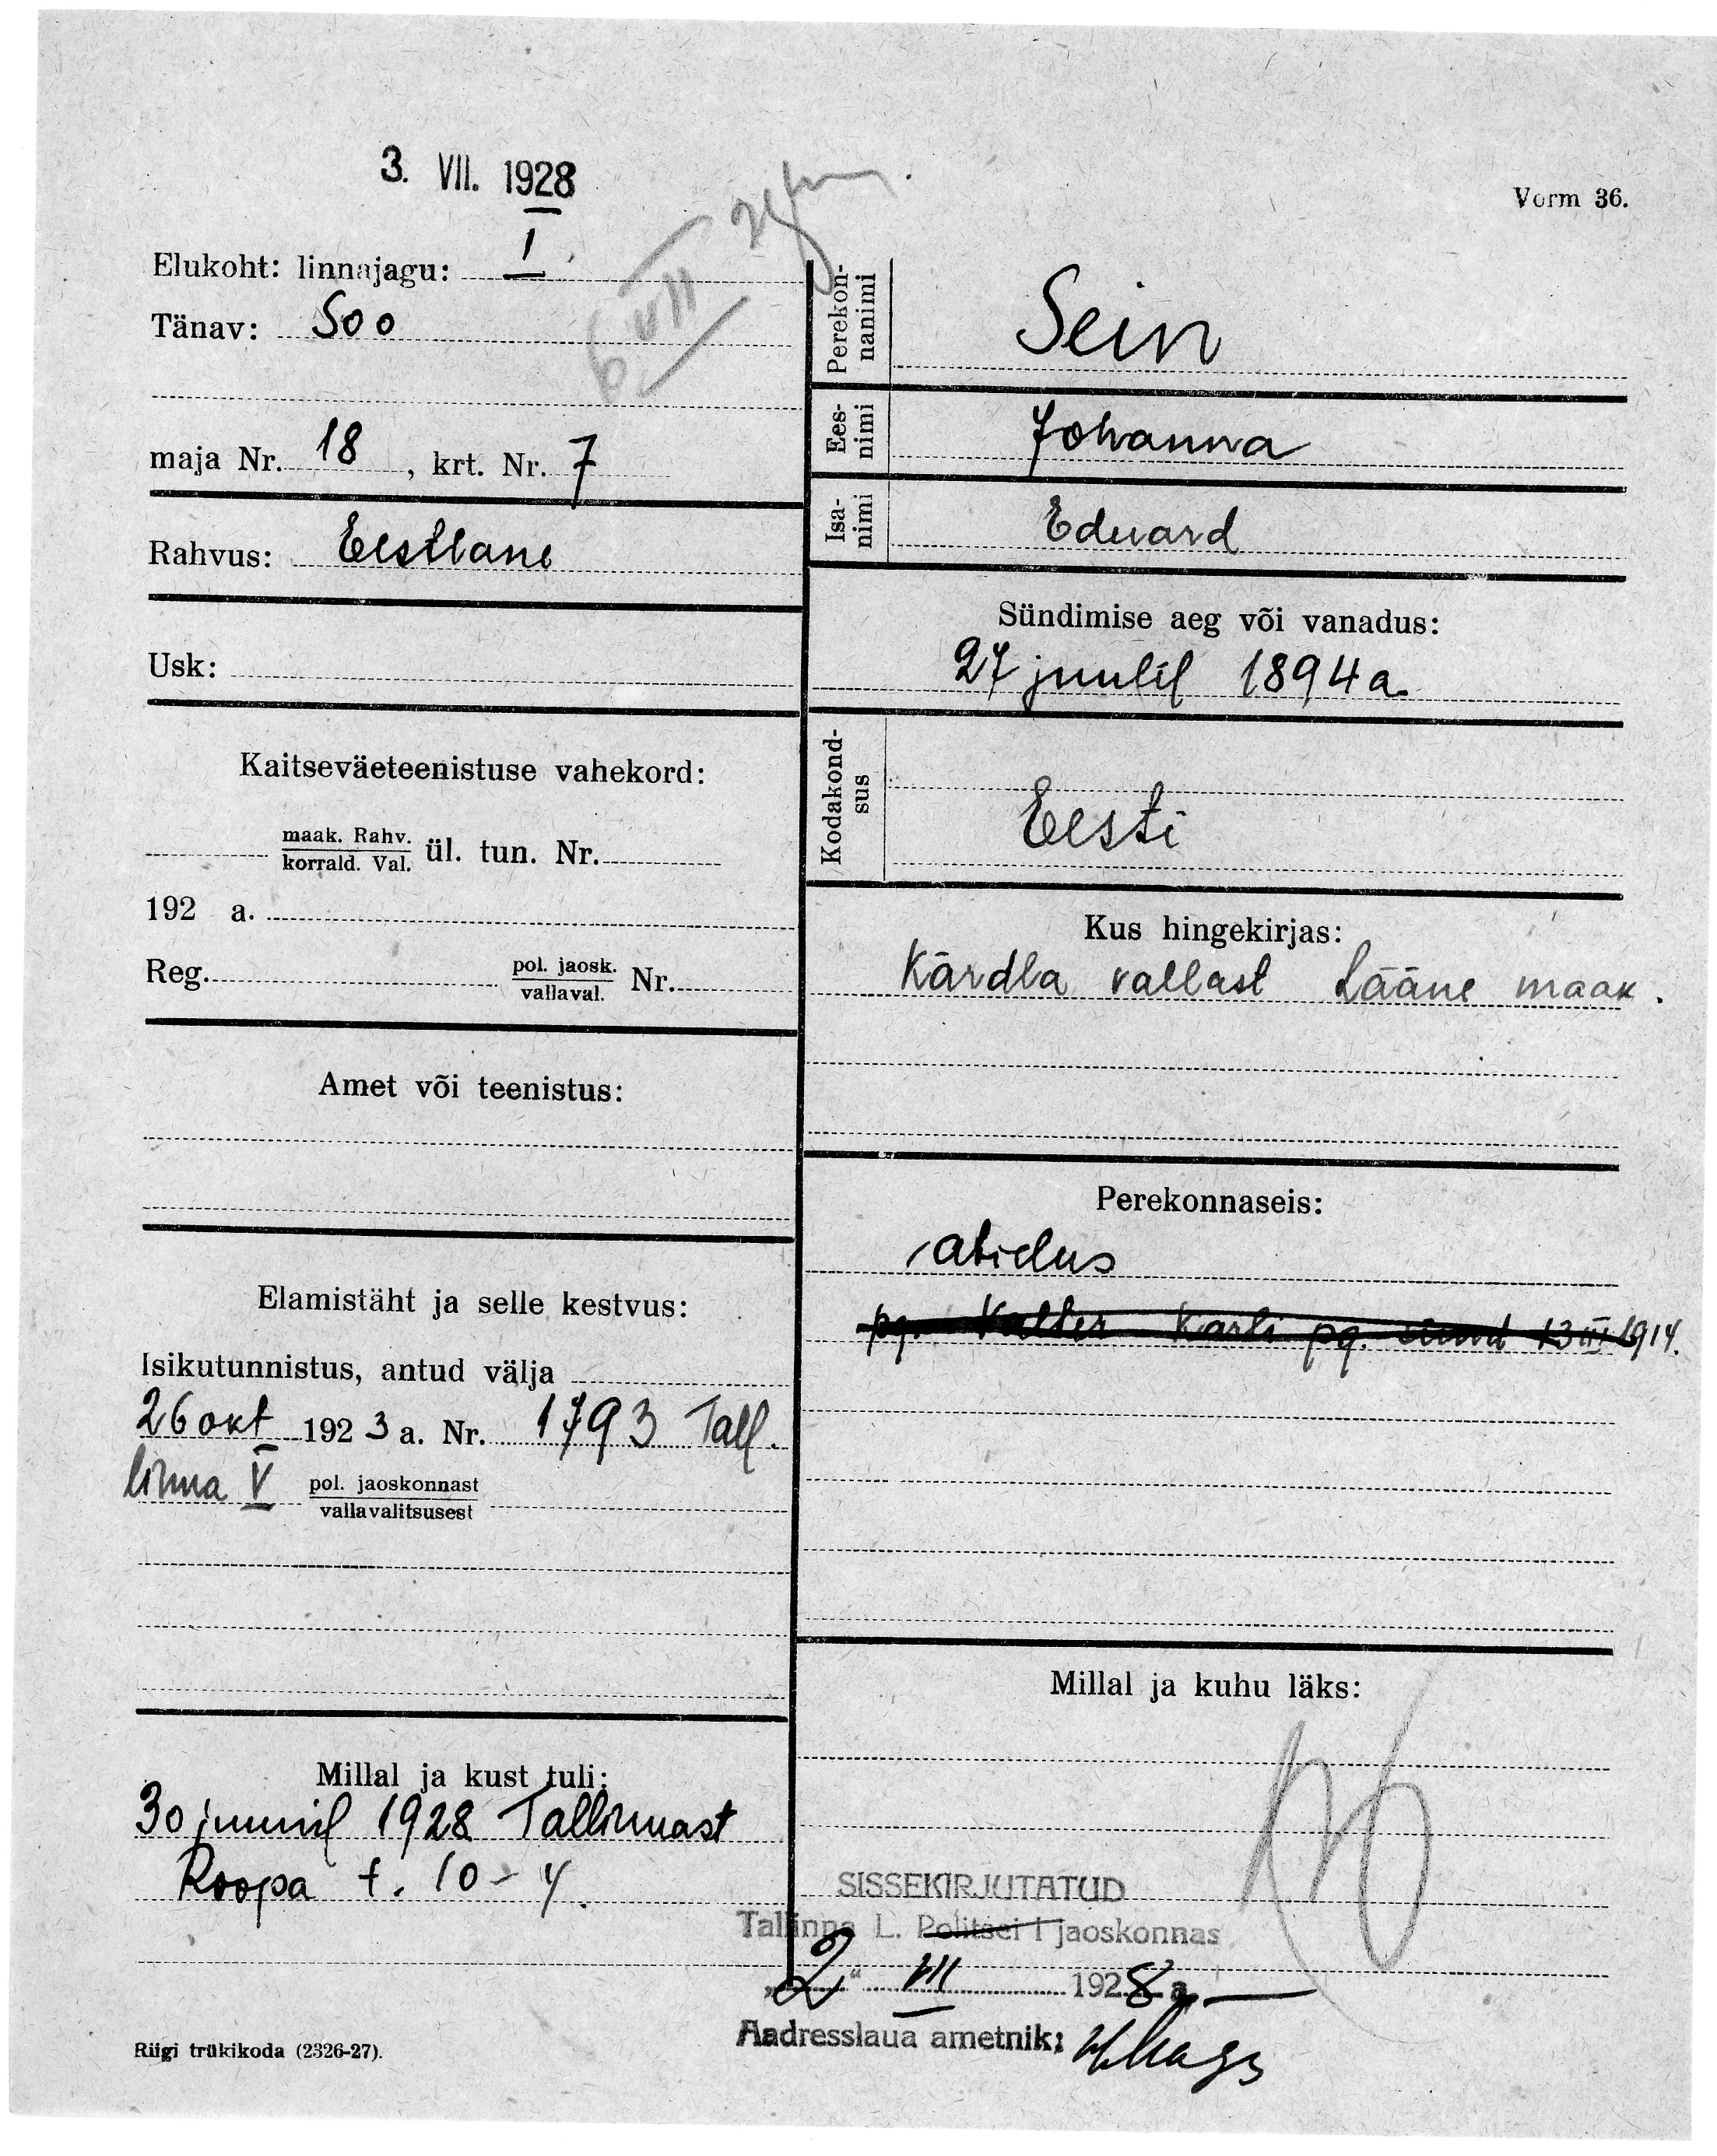 3. VII. 1928
Vorm 36.
6 VII
Elukoht: linnajagu: I
Tänav: Soo
maja Nr. 18, krt. Nr. 7
Rahvus: Eestlane
Usk:
Kaitseväeteenistuse vahekord:
maak. Rahv.
korrald. Val. ül. tun. Nr.
192 a.
Reg. pol. jaosk.
vallaval. Nr.
Amet või teenistus:
Elamistäht ja selle kestvus:
Isikutunnistus, antud välja
26 okt 1923 a. Nr. 1793 Tall.
linna V pol. jaoskonnast
vallavalitsusest
Millal ja kust tuli:
30 juunil 1928 Tallinnast
Roopa t. 10-4.
Riigi trükikoda (2326-27).
Perekon-
nanimi
Sein
Ees-
nimi
Johanna
Isa-
nimi
Eduard
Sündimise aeg või vanadus:
27 juulil 1894 a.
Kodakond-
sus
Eesti
Kus hingekirjas:
Kärdla vallast Lääne maak.
Perekonnaseis:
abielus
pg. Valter Karli pg. sünd 13 III 1914.
Millal ja kuhu läks:
SISSEKIRJUTATUD
Tallinna L. Politsei I jaoskonnas
„2“ VII 1928 a.
Aadresslaua ametnik: